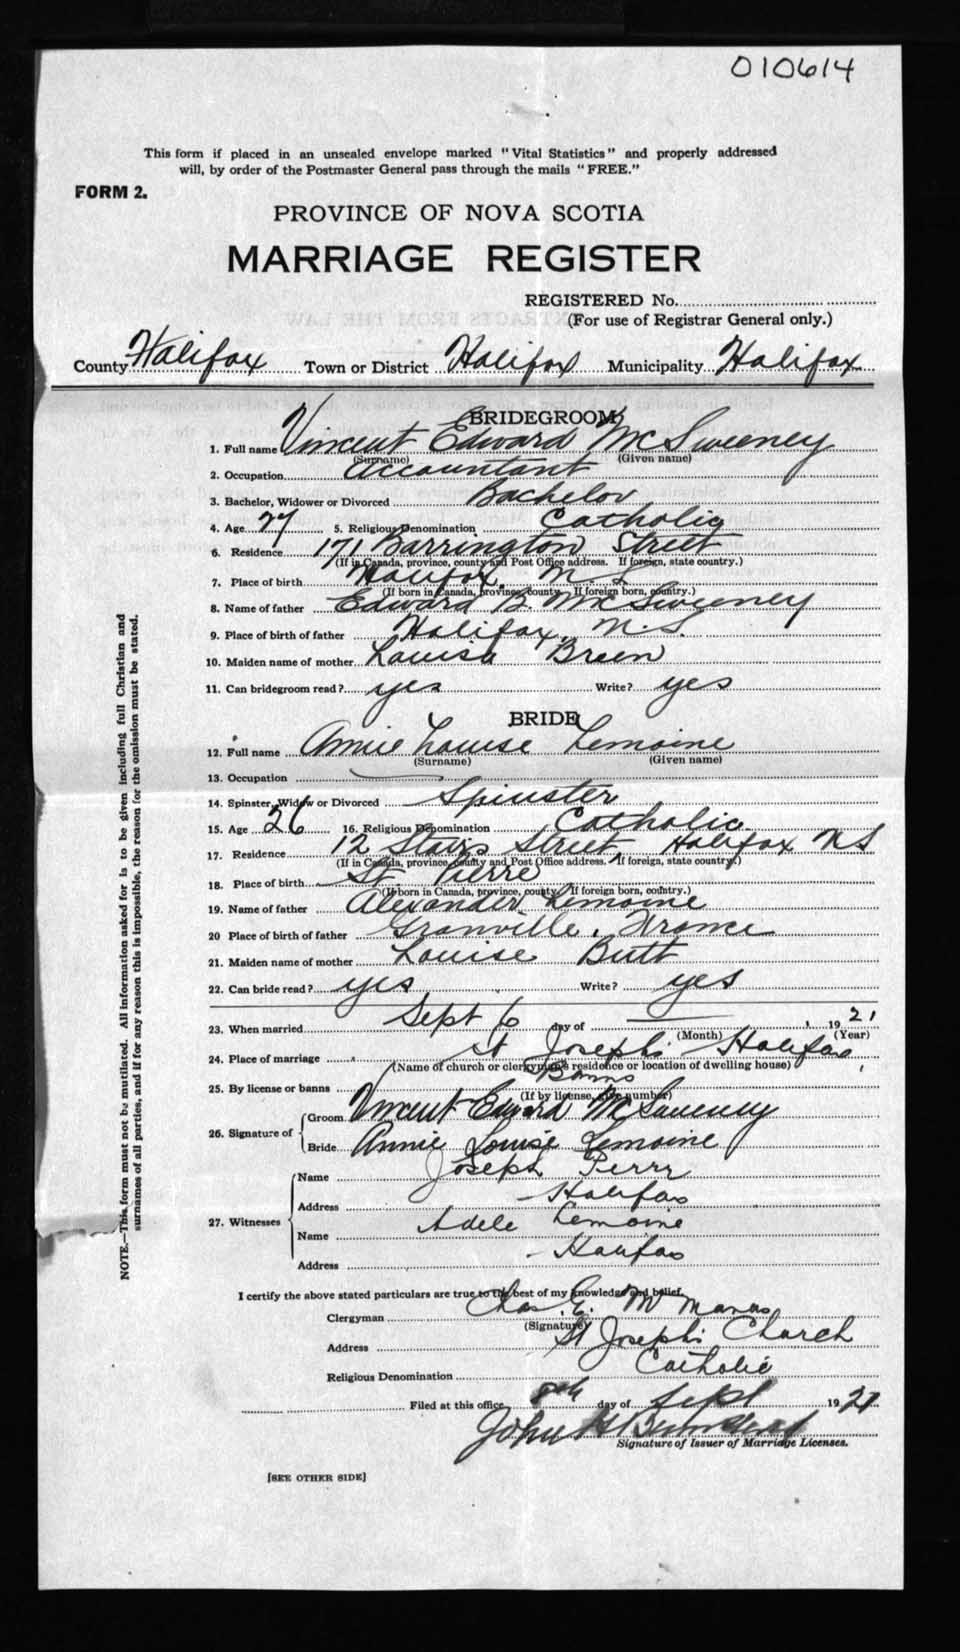 010614
This form if placed in an unsealed envelope marked "Vital Statistics" and properly addressed
will, by order of the Postmaster General pass through the mails "FREE."
FORM 2.
PROVINCE OF NOVA SCOTIA
MARRIAGE REGISTER
REGISTERED No.
(For use of Registrar General only.)
County Halifax Town or District Halifax Municipality Halifax
BRIDEGROOM
1. Full name Vincent Edward McSweeney
(Surname) (Given name)
2. Occupation Accountant
3. Bachelor, Widower or Divorced Bachelor
4. Age 27 5. Religious Denomination Catholic
6. Residence 171 Barrington Street
(If in Canada, province, county and Post Office address. If foreign, state country.)
7. Place of birth Halifax, N.S.
(If born in Canada, province, county. If foreign born, country.)
8. Name of father Edward B. McSweeney
9. Place of birth of father Halifax, N.S.
10. Maiden name of mother Louisa Breen
11. Can bridegroom read? yes Write? yes
BRIDE
12. Full name Annie Louise Lemoine
(Surname) (Given name)
13. Occupation
14. Spinster, Widow or Divorced Spinster
15. Age 26 16. Religious Denomination Catholic
17. Residence 12 Stairs Street Halifax NS
(If in Canada, province, county and Post Office address. If foreign, state country.)
18. Place of birth St. Pierre
(If born in Canada, province, county. If foreign born, country.)
19. Name of father Alexander Lemoine
20 Place of birth of father Granville, France
21. Maiden name of mother Louise Butt
22. Can bride read? yes Write? yes
23. When married Sept 6 day of 1921
(Month) (Year)
24. Place of marriage St Joseph's Halifax
(Name of church or clergyman's residence or location of dwelling house)
25. By license or banns Banns
(If by license, give number)
26. Signature of Groom Vincent Edward McSweeney
Bride Annie Louise Lemoine
27. Witnesses Name Joseph Perry
Address Halifax
Name Adele Lemoine
Address Halifax
I certify the above stated particulars are true to the best of my knowledge and belief.
Clergyman Chas. E. McManus
(Signature)
Address St Joseph's Church
Religious Denomination Catholic
Filed at this office 8th day of Sept 1921
John H
Signature of Issuer of Marriage Licenses.
[SEE OTHER SIDE]
NOTE.—This form must not be mutilated. All information asked for is to be given including full Christian and
surnames of all parties, and if for any reason this is impossible, the reason for the omission must be stated.